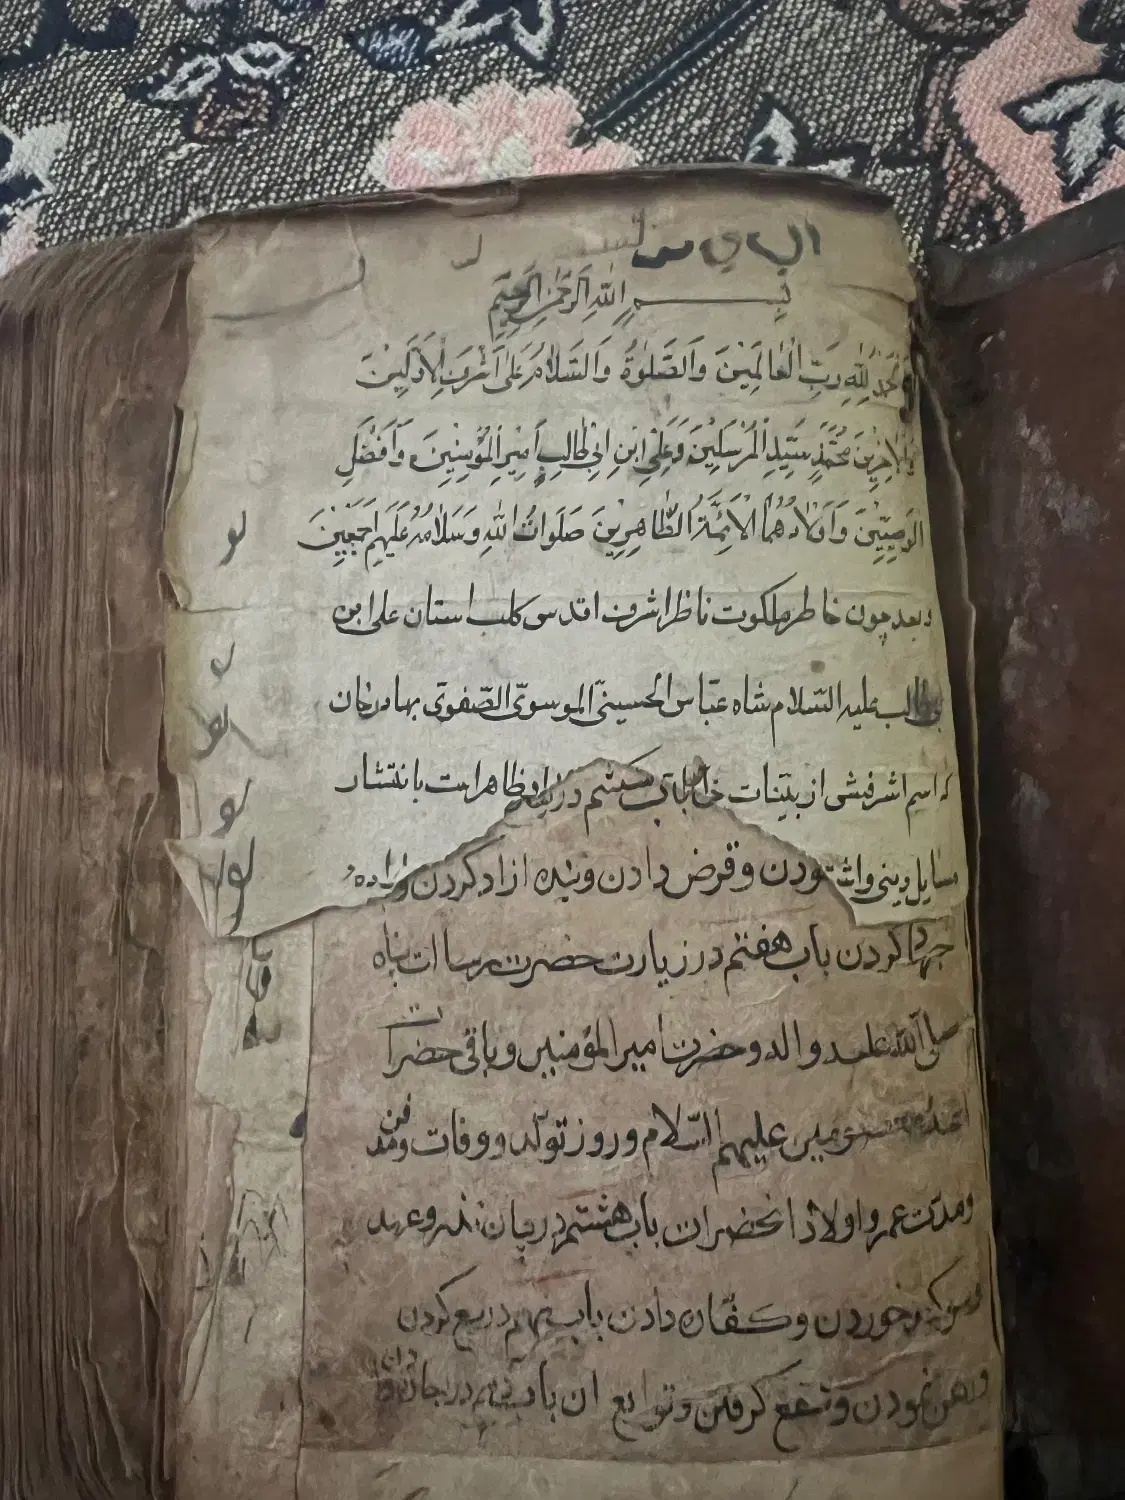 بسم الله الرحمن الرحيم
الحمد لله رَبِّ الْعَالَمِينَ وَالصَّلٰوةُ وَالسَّلَامُ عَلٰى اَشْرَفِ الْاَوَّلِينَ
وَالْاٰخِرِينَ مُحَمَّدٍ سَيِّدِ الْمُرْسَلِينَ وَعَلِيِّ ابْنِ اَبِي طَالِبٍ اَمِيرِ الْمُؤْمِنِينَ وَاَفْضَلِ
الْوَصِيِّينَ وَاَوْلَادِهُمَا الْاَئِمَّةِ الطَّاهِرِينَ صَلَوَاتُ اللهِ وَسَلَامُهُ عَلَيْهِمْ اَجْمَعِينَ
وبعد چون خاطر ملكوت ناظر اشرف اقدس كلب استان على ابن
ابى طالب عليه السّلام شاه عبّاس الحسينىّ الموسوىّ الصّفوىّ بهادرخان
كه اسم اشرفش از بيّنات در ظاهر است بانتشار
مسايل دينى نمودن و قرض دادن و بنده ازاد كردن و
جهاد كردن باب هفتم در زيارت حضرت رسالت پناه
صلى الله عليه واله و حضرت امير المؤمنين و باقى حضرات
ائمه معصومين عليهم السّلام و روز تولّد و وفات و مدفن
و مدّت عمر و اولاد انحضرات باب هشتم در بيان نذر و عهد
و سوكند خوردن و كفّاره دادن باب نهم در بيع كردن
و رهن نمودن و شفع كرفتن و توابع ان باب دهم در